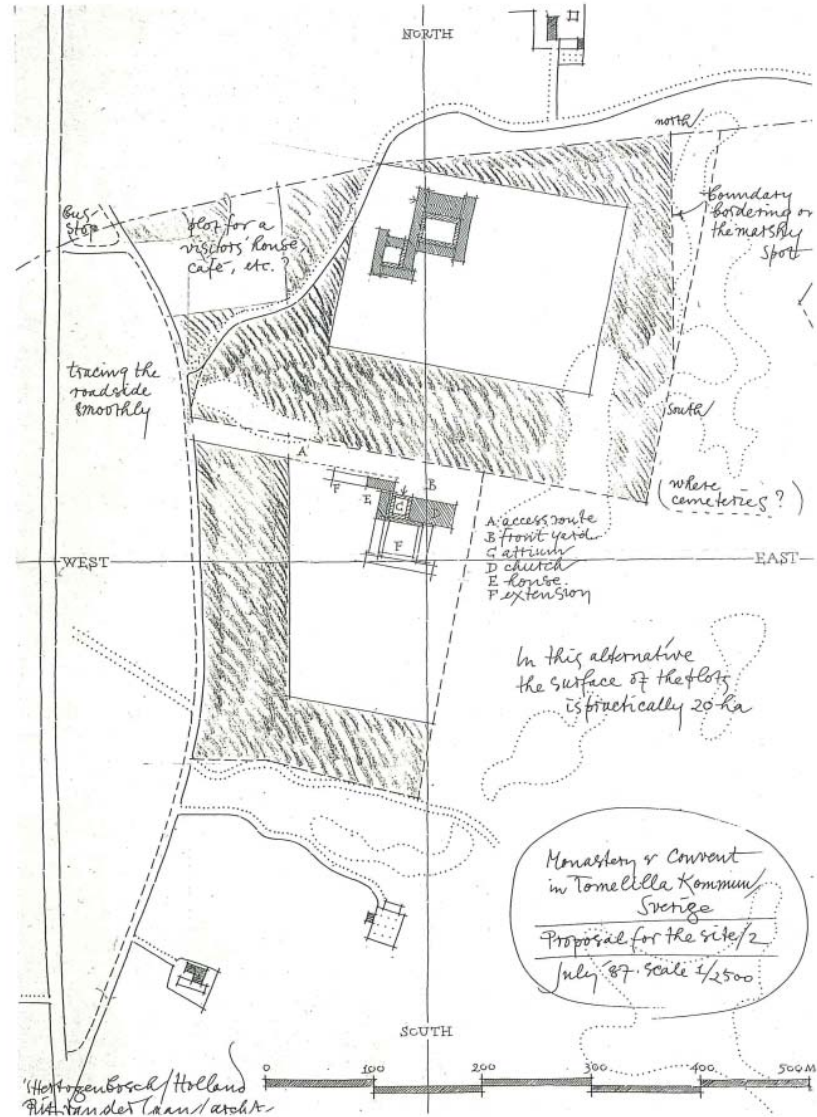 NORTH
north
Bus-
Stop
plot for a
visitors house
café, etc.?
boundary
bordering on
the marshy
spot
tracing the
roadside
smoothly
south
(where
cemeteries?)
A
F
E
C
B
D
F
A access route
B front yard
C atrium
D church
E house
F extension
WEST
EAST
In this alternative
the surface of the plots
is practically 20 ha
Monastery & Convent
in Tomelilla Kommun/
Sverige
Proposal for the site/2
July '87. scale 1/2500
SOUTH
'sHertogenbosch/Holland
van der Laan/archt-
0 100 200 300 400 500M